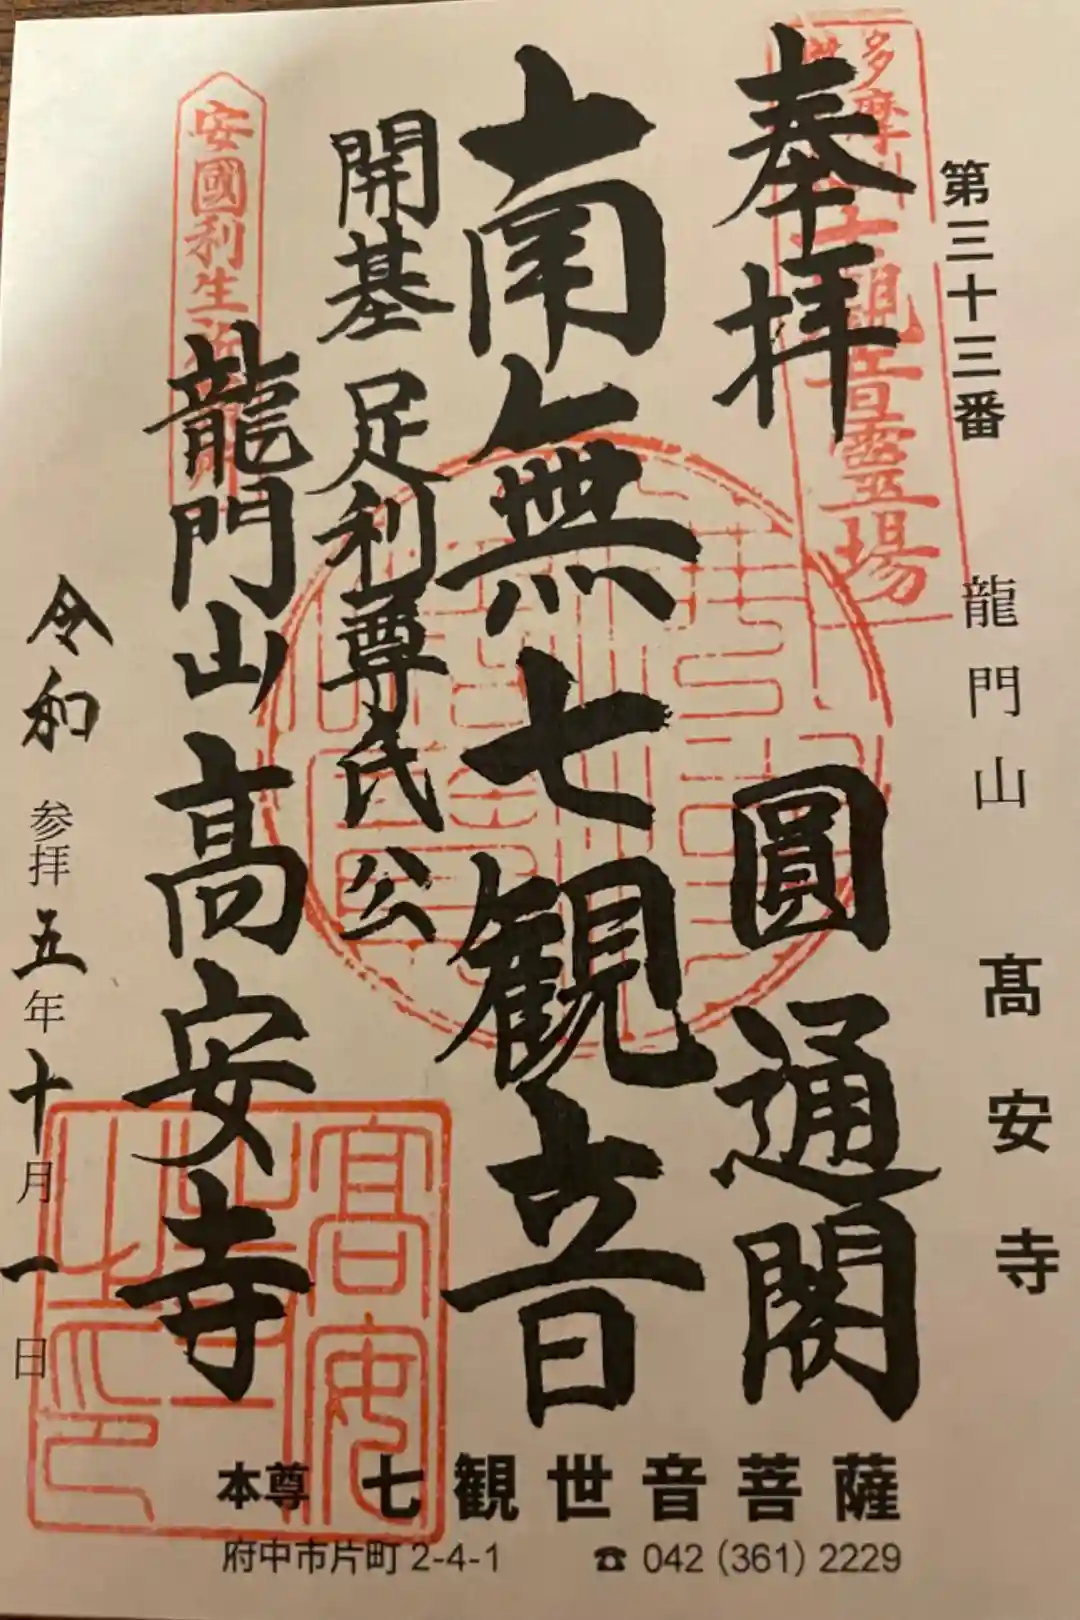 第三十三番 龍門山 髙安寺
多摩川三十三観音霊場
奉拝 圓通閣
南無七観音
開基 足利尊氏公
安國利生
龍門山高安寺
令和 参拝 五年十月一日
高安
寺
之印
本尊 七観世音菩薩
府中市片町2-4-1 ☎ 042 (361) 2229